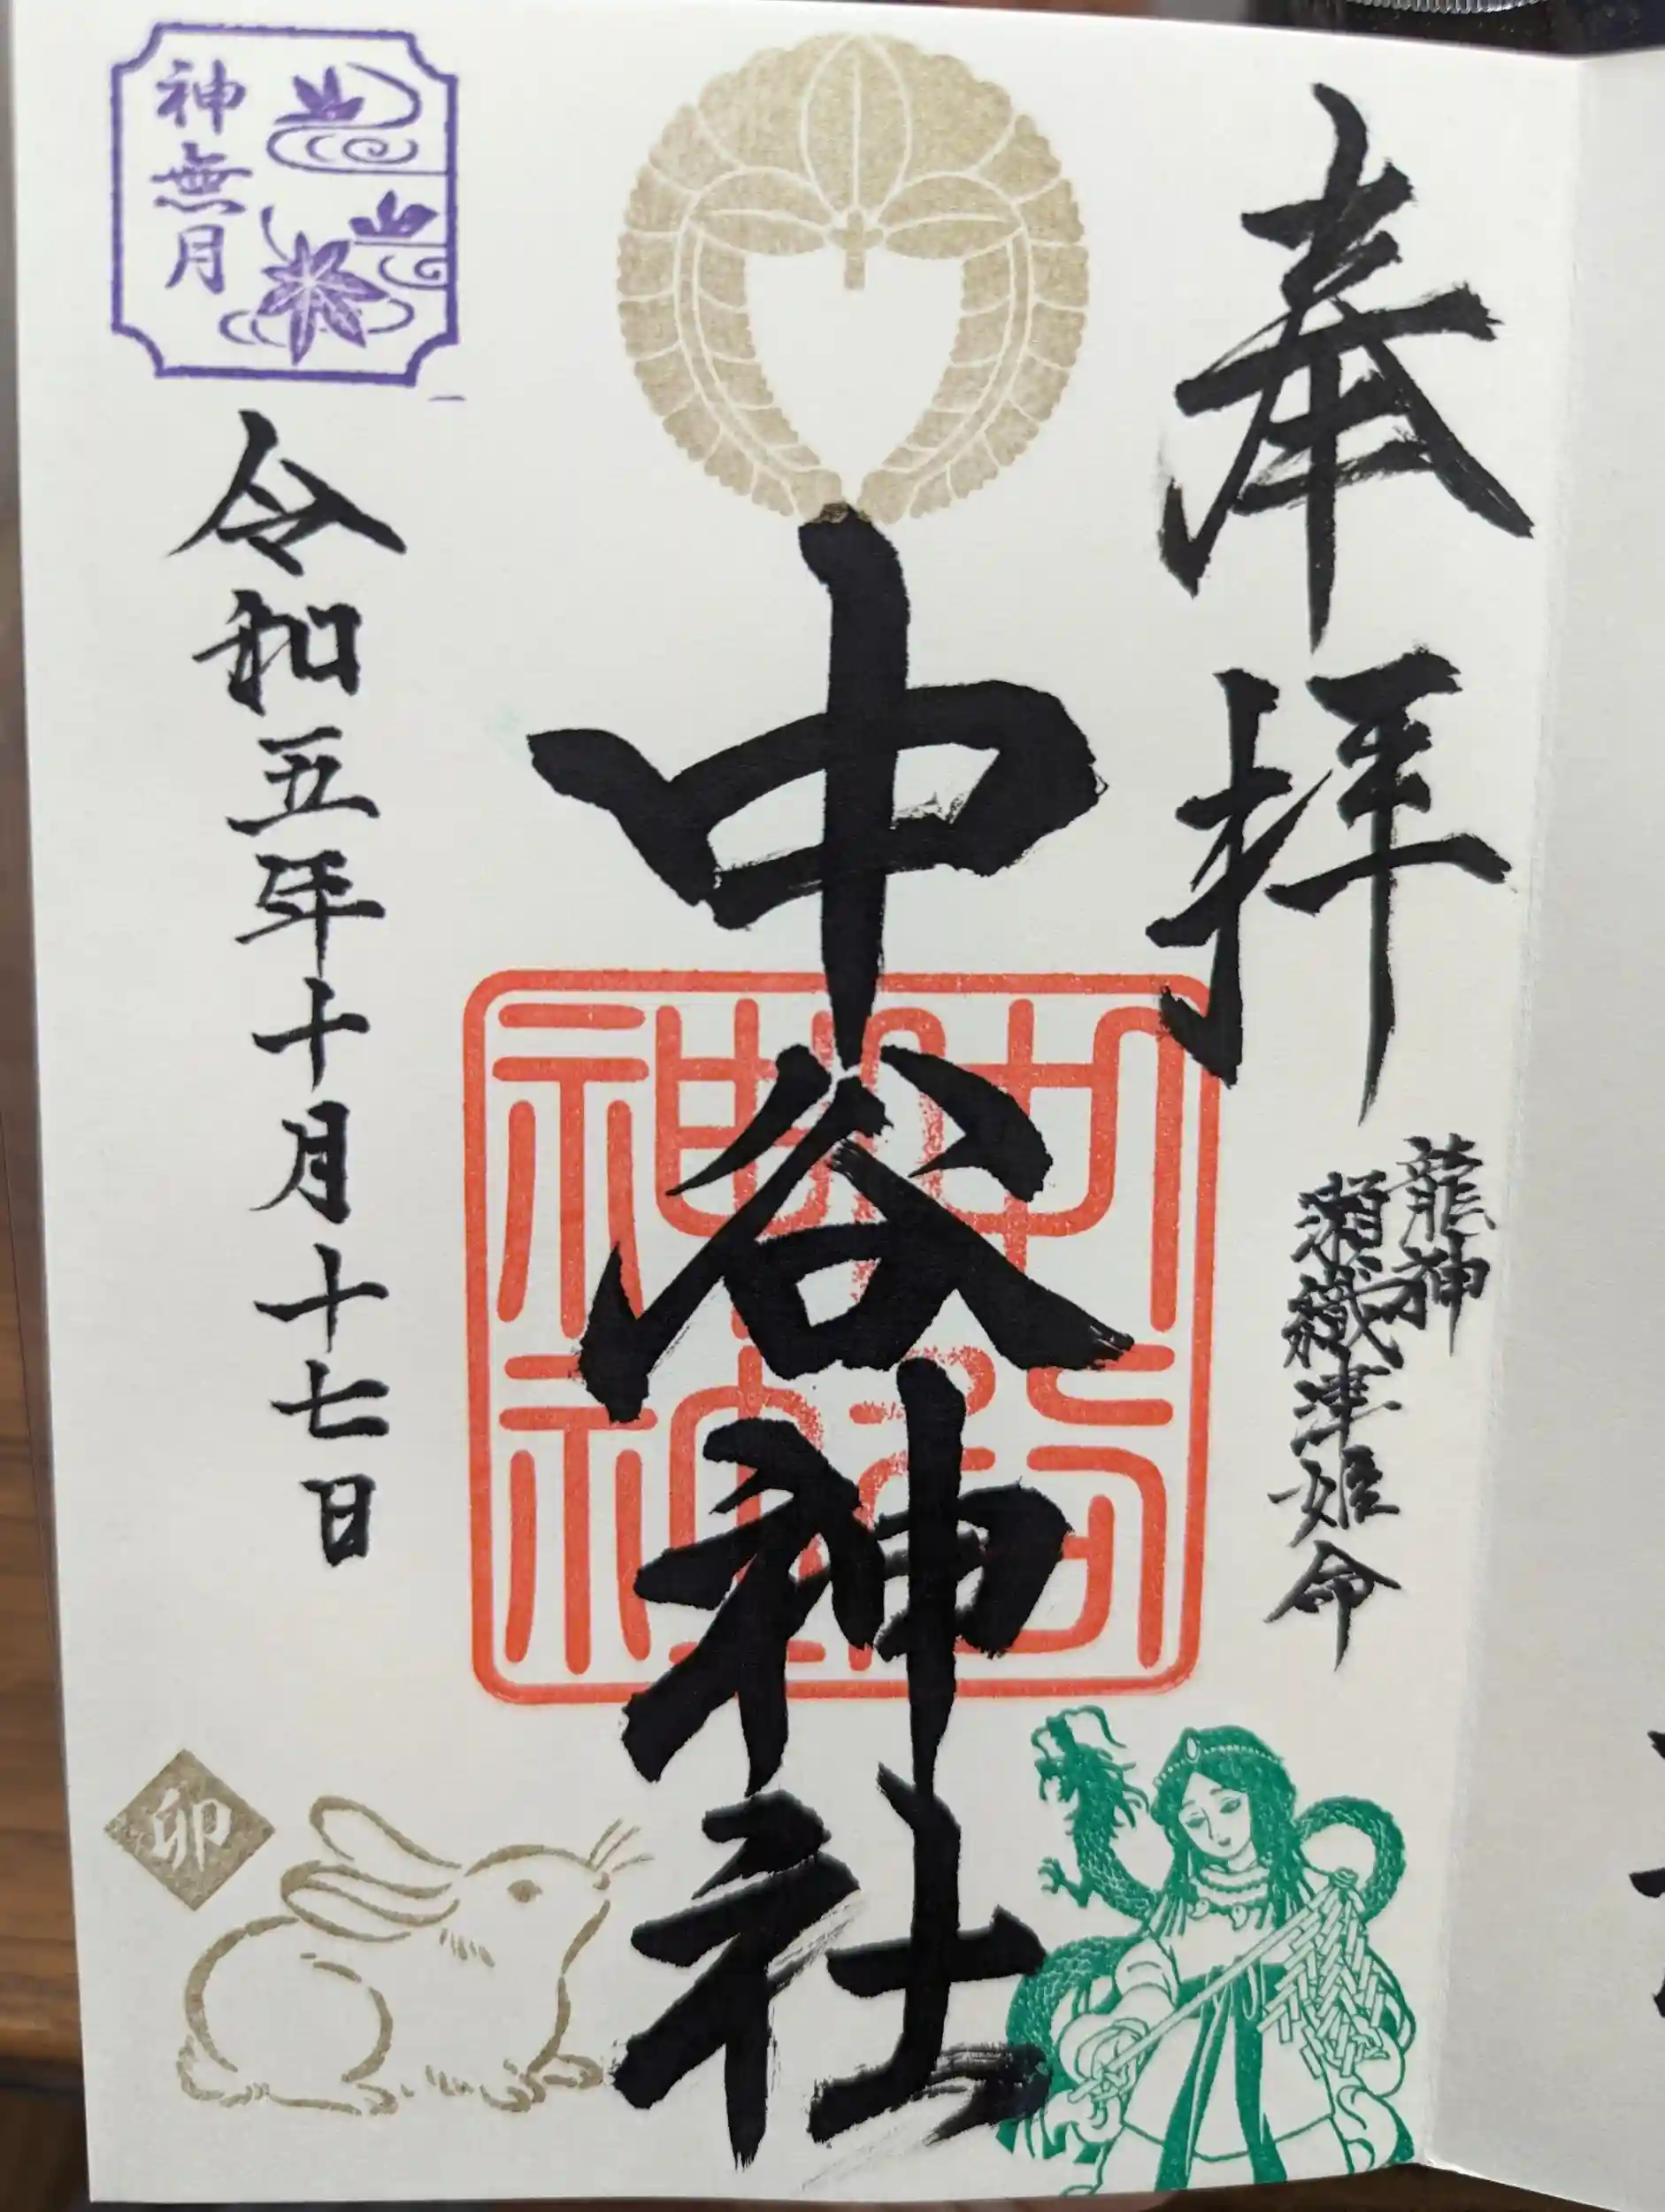 奉拝
龍神
瀬織津姫命
中谷神社
中谷神社
神無月
令和五年十月十七日
卯